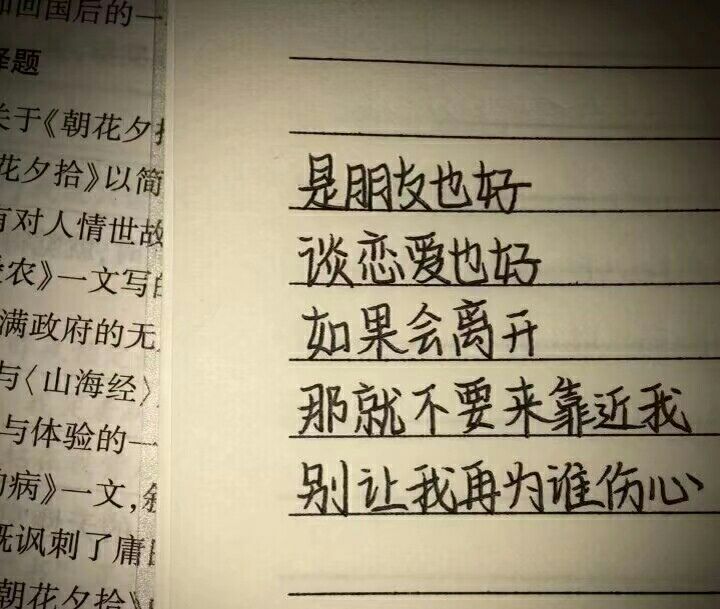 如回国后的一
择题
关于《朝花夕拾
花夕拾》以简
有对人情世故
农》一文写的
满政府的无
与〈山海经〉
与体验的一
病》一文,叙
既讽刺了庸医
朝花夕拾》
是朋友也好
谈恋爱也好
如果会离开
那就不要来靠近我
别让我再为谁伤心